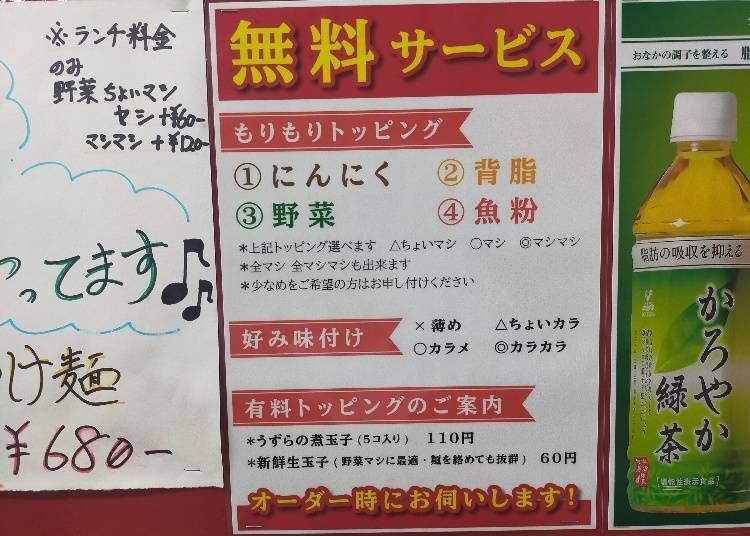 ※ランチ料金
のみ
野菜ちょいマシ
マシ+¥60-
マシマシ+¥120-
ってます♪
け麺
¥680-
無料サービス
もりもりトッピング
①にんにく ②背脂
③野菜 ④魚粉
*上記トッピング選べます △ちょいマシ ○マシ ◎マシマシ
*全マシ 全マシマシも出来ます
*少なめをご希望の方はお申し付けください
好み味付け
×薄め △ちょいカラ
○カラメ ◎カラカラ
有料トッピングのご案内
*うずらの煮玉子(5コ入り) 110円
*新鮮生玉子(野菜マシに最適・麺を絡めても抜群) 60円
オーダー時にお伺いします!
おなかの調子を整える 脂
脂肪の吸収を抑える
かろやか
緑茶
機能性表示食品